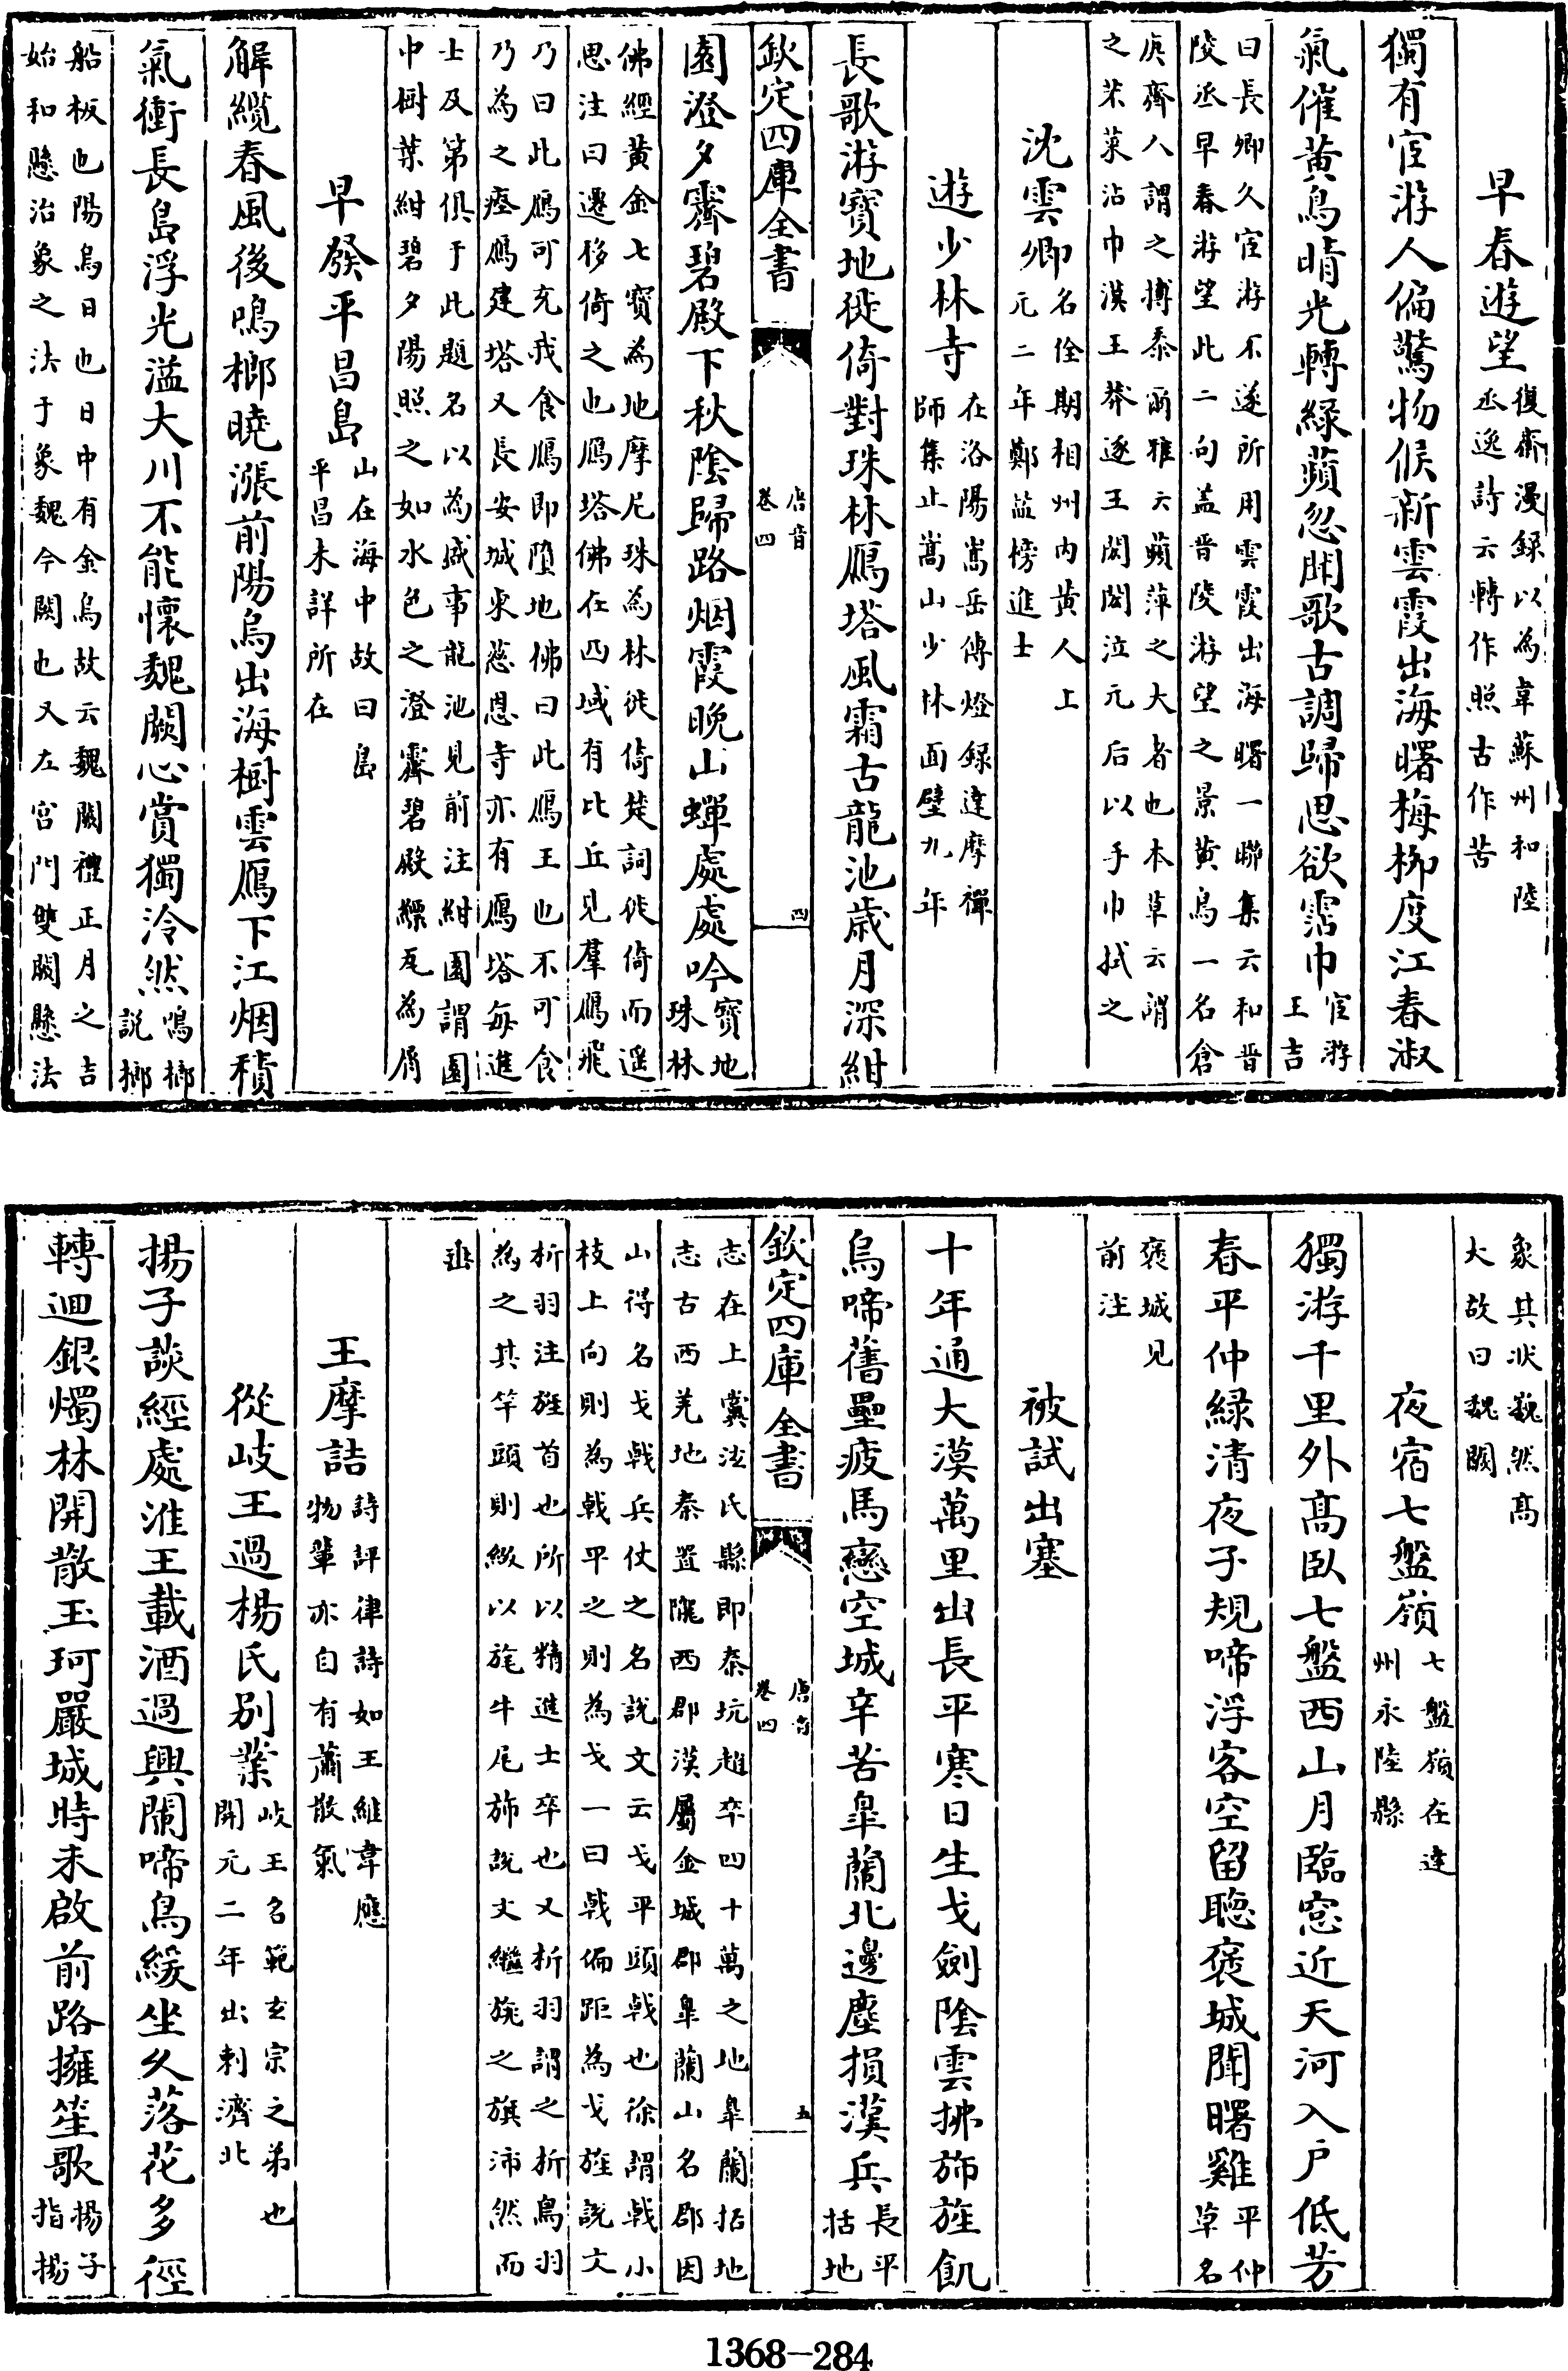 早春遊望復齋漫録以為韋蘇州和陸
丞逸詩云轉作照古作苦
獨有宦游人偏驚物候新雲霞出海曙梅柳度江春淑
氣催黄鳥晴光轉緑蘋忽聞歌古調歸思欲霑巾宦游
王吉
曰長卿久宦游不遂所用雲霞出海曙一聯集云和晋
陵丞早春游望此二句盖晋陵游望之景黄鳥一名倉
庚齊人謂之摶黍爾雅云蘋萍之大者也本草云謂
之芣菜沾巾漢王莽逐王閎閎泣元后以手巾拭之
沈雲卿名佺期相州内黄人上
元二年鄭益榜進士
遊少林寺在洛陽嵩岳傳燈録達摩禪
師集止嵩山少林面壁九年
長歌游寳地徙倚對珠林鴈塔風霜古龍池歳月深紺
欽定四庫全書
唐音
卷四
四
園澄夕霽碧殿下秋隂歸路烟霞晚山蟬處處吟寳地
珠林
佛經黄金七寳為地摩尼珠為林徙倚楚詞徙倚而遥
思注曰遷移倚之也鴈塔佛在西域有比丘見羣鴈飛
乃曰此鴈可充我食鴈即墮地佛曰此鴈王也不可食
乃為之瘞鴈建塔又長安城東慈恩寺亦有鴈塔每進
士及第俱于此題名以為盛事龍池見前注紺園謂園
中樹葉紺碧夕陽照之如水色之澄霽碧殿縹瓦為屑
早發平昌島山在海中故曰島
平昌未詳所在
解纜春風後鳴榔曉漲前陽烏出海樹雲鴈下江烟積
氣衝長島浮光溢大川不能懷魏闕心賞獨泠然鳴榔
説榔
船板也陽烏日也日中有金烏故云魏闕禮正月之吉
始和懸治象之法于象魏今闕也又左宫門雙闕懸法
象其狀巍然髙
大故曰魏闕
夜宿七盤嶺七盤嶺在達
州永陸縣
獨游千里外髙臥七盤西山月臨窓近天河入户低芳
春平仲緑清夜子規啼浮客空留聴褒城聞曙雞平仲
草名
褒城見
前注
被試出塞
十年通大漠萬里出長平寒日生戈劍隂雲拂旆旌飢
烏啼舊壘疲馬戀空城辛苦臯蘭北邊塵損漢兵長平
括地
欽定四庫全書
唐音
卷四
五
志在上黨泫氏縣即秦坑趙卒四十萬之地臯蘭括地
志古西羌地秦置隴西郡漢屬金城郡臯蘭山名郡因
山得名戈㦸兵仗之名説文云戈平頭㦸也徐謂㦸小
枝上向則為㦸平之則為戈一曰㦸偏距為戈旌説文
析羽注旌首也所以精進士卒也又析羽謂之折鳥羽
為之其竿頭則綴以旄牛尾旆説文繼旐之旗沛然而
垂
王摩詰詩評律詩如王維韋應
物輩亦自有蕭散氣
從岐王過楊氏别業岐王名範玄宗之弟也
開元二年出刺濟北
揚子談經處淮王載酒過興闌啼鳥緩坐久落花多徑
轉迴銀燭林開散玉珂嚴城時未啟前路擁笙歌揚子
指揚
1368—284